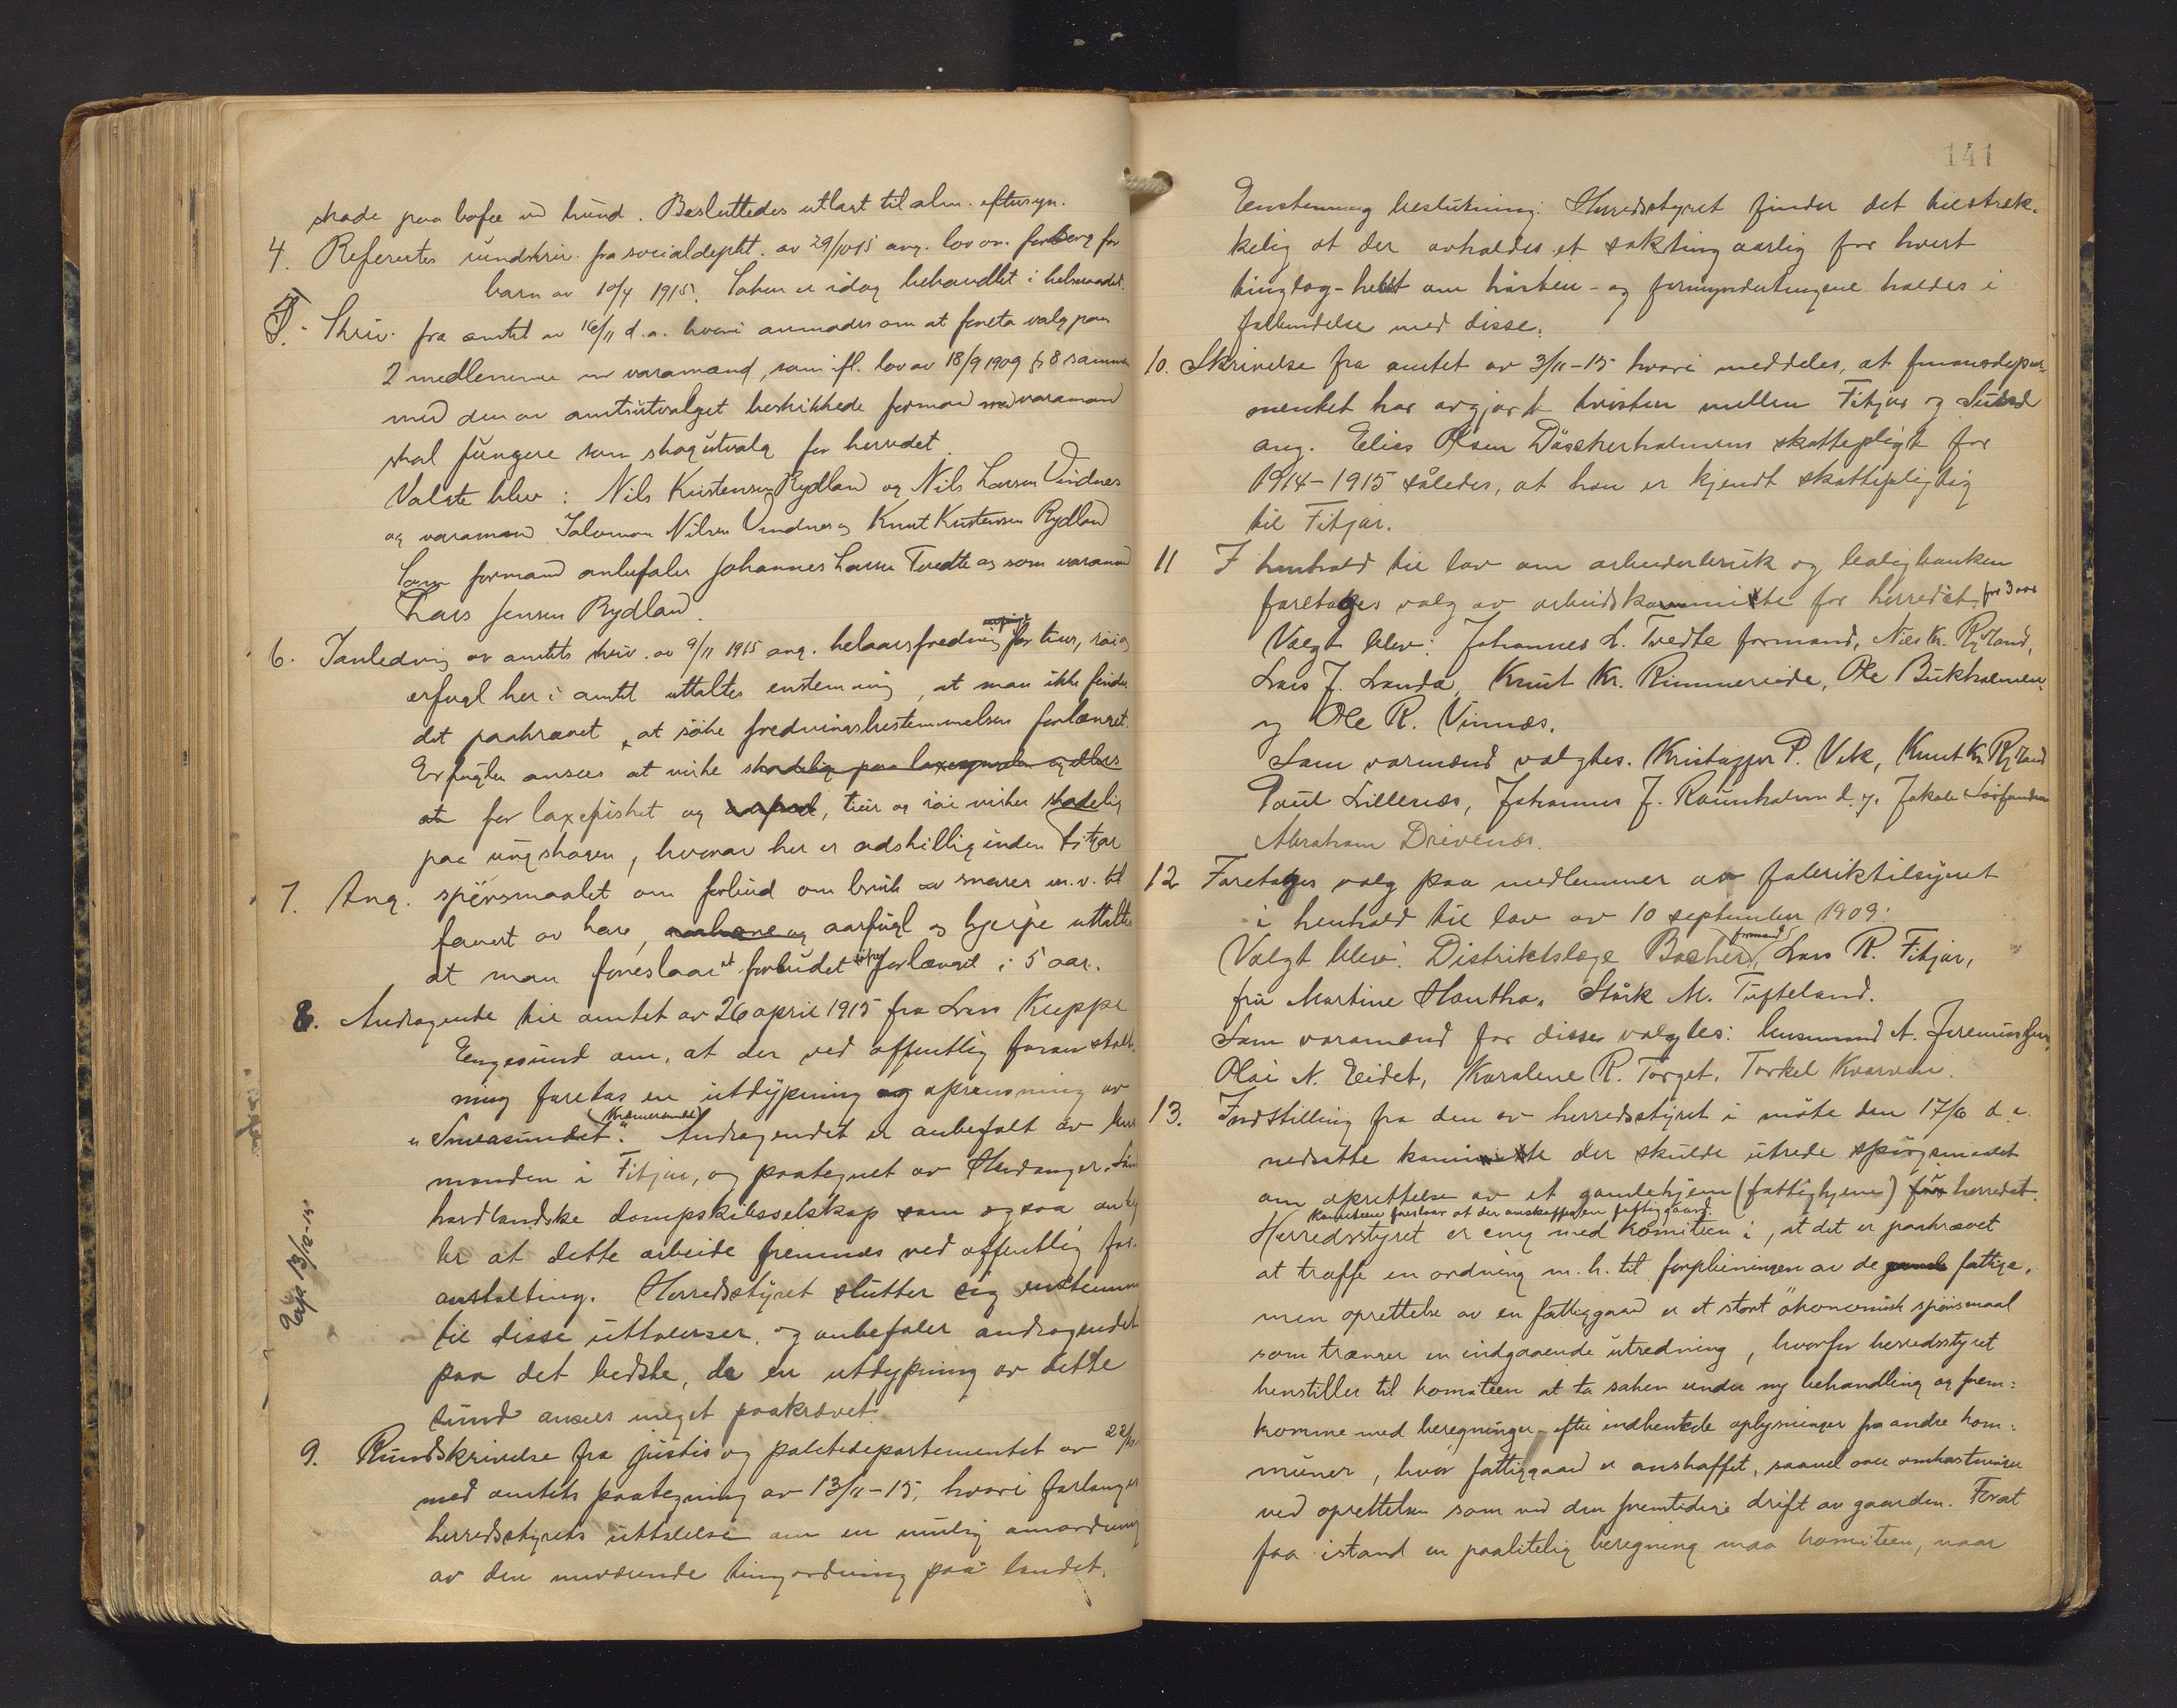 skade paa bufæ ved hund. Besluttedes utlagt til alm. eftersyn.
4. Refereertes rundskriv. fra socialdeptet. av 29/10 15 ang. lov om forsorg for
barn av 10/4 1915. Saken er idag behandlet i helseraadet.
5. Skriv. fra amtet av 16/11 d.a. hvori anmodes om at foreta valg paa
2 medlemmer m varamænd, som ifl. lov av 18/9 1909 § 8 sammen
med den av amtsutvalget beskikkede formand med varamand
skal fungere som skogutvalg for herredet.
Valgte blev: Nils Kristensen Rydland og Nils Larsen Vindnes
og varamænd Salomon Nilsen Vindnes og Knut Kristensen Rydland
Som formand anbefales Johannes Larsen Tvedte og som varamand
Lars Jensen Rydland.
6. I anledning av amtets skriv. av 9/11 1915 ang. helaarsfredning for tiur, röi og
ærfugl her i amtet uttaltes enstemmig, at man ikke finder
det paakrævet, at söke fredningsbestemmelsen forlænget.
Ærfuglen ansees at virke skadelig paa laxeyngelen og ellers
for laxefisket og aarfugl, tiur og röi virker skadelig
paa ungskogen, hvorav her er adskillig inden Fitjar
7. Ang. spörsmaalet om forbud om bruk av snarer m.v. til
fangst av hare, aarhane og aarfugl og hjerpe uttaltes
at man foreslaar at forbudet forlænget i 5 aar.
8. Andragende til amtet av 26 april 1915 fra Lars Kleppe
Engesund om, at der ved offentlig foranstalt-
ning foretas en utdypning og oprensning av
"Smeasundet" (Kræmersundet). Andragendet er anbefalt av lens
manden i Fitjar, og paategnet av Hardanger-Sønd
hordlandske dampskibsselskap som ogsaa anbefa
ler at dette arbeide fremmes ved offentlig for-
anstaltning. Herredsstyret slutter sig enstemmig
til disse uttalelser, og anbefaler andragendet
paa det bedste, da en utdypning av dette
sund ansees meget paakrævet.
Exp 13/12-15
9. Rundskrivelse fra justis og politidepartementet av 22/10
med amtets paategning av 13/11-15, hvori forlanges
herredsstyrets uttalelse om en mulig omordning
av den nuværende tingordning paa landet.
141
Enstemmig beslutning: Herredsstyret finder det tilstræk-
kelig at der avholdes et sakting aarlig for hvert
tinglag - helst om hösten - og formyndertingene holdes i
forbindelse med disse.
10. Skrivelse fra amtet av 3/11-15 hvori meddeles, at finansdepar-
mentet har avgjort tvisten mellem Fitjar og Sund
ang. Elias Olsen Dåskerholmens skattepligt for
1914-1915 således, at han er kjendt skattepligtig
til Fitjar.
11 I henhold til lov om arbeiderbruk og boligbanken
foretages valg av arbeidskommitte for herredet for 3 aar
Valgt blev: Johannes L. Tvedte formand, Nils Kr. Rydland,
Lars J. Landa, Knut Kr. Rimmereide, Ole Bukholmen,
og Ole R. Vinnæs.
Som varmænd valgtes. Kristoffer P. Vik, Knut Kr. Rydland
Poul Lillenæs, Johannes J. Raunholm d.y. Jakob
Abraham Drivenæs.
12 Foretages valg paa medlemmer av fabriktilsynet
i henhold til lov av 10 september 1909:
Valgt blev: Distriktslæge Bøcher (formand), Lars R. Fitjar,
fru Martine Havtho. Stårk M. Tufteland.
Som varamænd for disse valgtes: lensmand A.
Olai N. Eidet, Karolene R. Torget, Torkel Kvarven.
13. Indstilling fra den av herredsstyret i möte den 17/6 d.a.
nedsatte kommitte der skulde utrede spörgsmaalet
om oprettelse av et gamlehjem (fattighjem) for herredet.
Komiteen foreslaar at der anskaffes en fattiggaard.
Herredsstyret er enig med komiteen i, at det er paakrævet
at træffe en ordning m.h. til forpleiningen av de gamle fattige,
men oprettelse av en fattiggaard er et stort ökonomisk spörsmaal
som trænger en indgaaende utredning, hvorfor herredsstyret
henstiller til komiteen at ta saken under ny behandling og frem=
komme med beregninger efter indhentede oplysninger fra andre kom=
muner, hvor fattiggaard er anskaffet, saavel over omkostninger
ved oprettelsen som ved den fremtidige drift av gaarden. Forat
faa istand en paalitelig beregning maa komiteen, naar